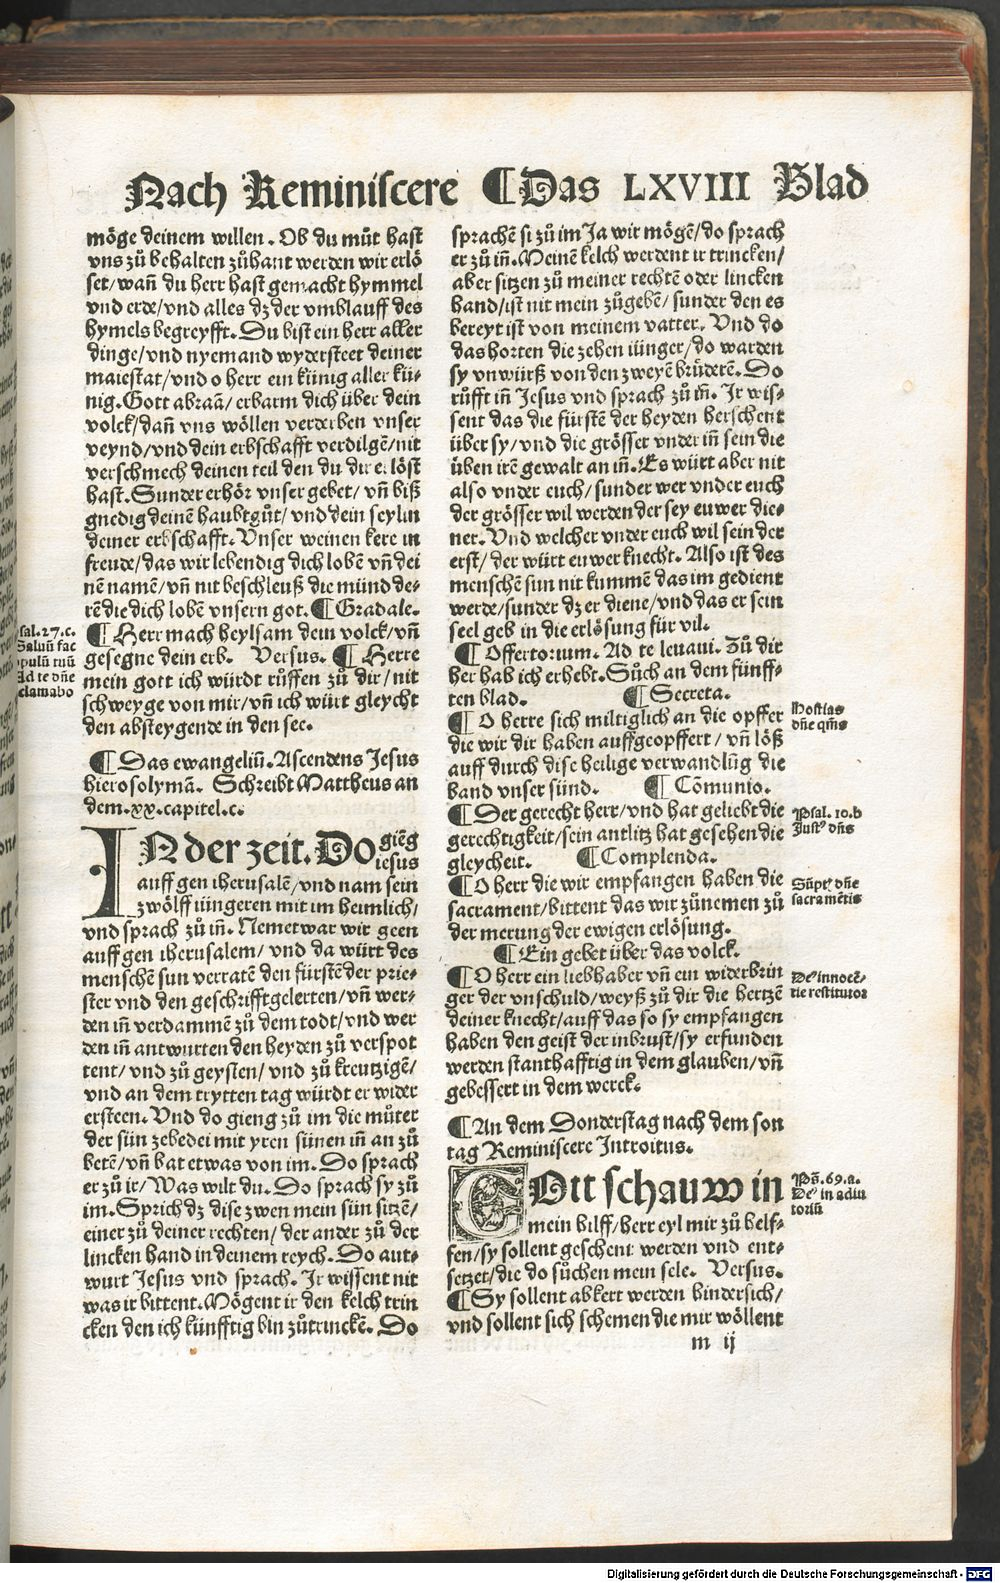 Nach Reminiscere ¶Das LXVIII Blad
möge deinem willen. Ob du můt hast
vns zů behalten zůhant werden wir erlö
set/wañ du herr hast gemacht hymmel
vnd erde/vnd alles dz der vmblauff des
hymels begreyfft. Du bist ein herr aller
dinge/vnd nyemand wydersteet deiner
maiestat/vnd o herr ein künig aller kü-
nig. Gott abraã/erbarm dich über dein
volck/dañ vns wöllen verderben vnser
veynd/vnd dein erbschafft verdilgē/nit
verschmech deinen teil den du dir erlöst
hast. Sunder erhör vnser gebet/vñ biß
gnedig deinē haubtgůt/vnd dein seylin
deiner erbschafft. Vnser weinen kere in
freude/das wir lebendig dich lobē vñ dei
nē namē/vñ nit beschleuß die münd de-
rē die dich lobē vnsern got. ¶Gradale.
¶Herr mach heylsam dein volck/vñ
gesegne dein erb. Versus. ¶Herre
mein gott ich würdt rüffen zů dir/nit
schweyge von mir/vñ ich würt gleycht
den absteygende in den see.
sal. 27.c.
Saluũ fac
opulũ tuũ
Ad te dñe
clamabo
¶Das ewangeliũ. Ascendens Jesus
hierosolymã. Schreibt Mattheus an
dem.xx.capitel.c.
IN der zeit. Do gieg
iesus
auff gen iherusalē/vnd nam sein
zwölff iüngeren mit im heimlich/
vnd sprach zů iñ. Nemet war wir geen
auff gen iherusalem/vnd da würt des
menschē sun verratē den fürstē der prie-
ster vnd den geschrifftgelerten/vñ wer-
den iñ verdammē zů dem todt/vnd wer
den iñ antwurten den heyden zů verspot
tent/vnd zů geyslen/vnd zů kreutzigē/
vnd an dem trytten tag würdt er wider
ersteen. Vnd do gieng zů im die můter
der sün zebedei mit yren sünen iñ an zů
betē/vñ bat etwas von im. Do sprach
er zů ir/Was wilt du. Do sprach sy zů
im. Sprich dz dise zwen mein sün sitzē/
einer zů deiner rechten/der ander zů der
lincken hand in deinem reych. Do ant-
wurt Jesus vnd sprach. Ir wissent nit
was ir bittent. Mögent ir den kelch trin
cken den ich künfftig bin zůtrinckē. Do
sprachē si zů im Ja wir mögē/do sprach
er zů iñ. Meinē kelch werdent ir trincken/
aber sitzen zů meiner rechtē oder lincken
hand/ist nit mein zůgebē/sunder den es
bereyt ist von meinem vatter. Vnd do
das horten die zehen iünger/do warden
sy vnwürß von den zweyē brüderē. Do
rüfft iñ Jesus vnd sprach zů iñ. Ir wis-
sent das die fürstē der heyden herschent
über sy/vnd die grösser vnder iñ sein die
üben irē gewalt an iñ. Es würt aber nit
also vnder euch/sunder wer vnder euch
der grösser wil werden der sey euwer die-
ner. Vnd welcher vnder euch wil sein der
erst/der würt euwer knecht. Also ist des
menschē sun nit kummē das im gedient
werde/sunder dz er diene/vnd das er sein
seel geb in die erlösung für vil.
¶Offertorium. Ad te leuaui. Zů dir
her hab ich erhebt. Sůch an dem fünff-
ten blad. ¶Secreta.
¶O herre sich miltiglich an die opffer
die wir dir haben auffgeopffert/vñ löß
auff durch dise heilige verwandlũg die
band vnser sünd. ¶Cõmunio.
Hostias
dñe qm̃s
¶Der gerecht herr/vnd hat geliebt die
gerechtigkeit/sein antlitz hat gesehen die
gleycheit. ¶Complenda.
Psal. 10.b
Justꝰ dñs
¶O herr die wir empfangen haben die
sacrament/bittent das wir zůnemen zů
der merung der ewigen erlösung.
Sũptꝭ dñe
sacramētis
¶Ein gebet über das volck.
¶O herr ein liebhaber vñ ein widerbrin
ger der vnschuld/weyß zů dir die hertzē
deiner knecht/auff das so sy empfangen
haben den geist der inbrust/sy erfunden
werden standhafftig in dem glauben/vñ
gebessert in dem werck.
Deꝰ innocē-
tie restitutor
¶An dem Donderstag nach dem son
tag Reminiscere Introitus.
GOtt schauw in
mein hilff/herr eyl mir zů helf-
fen/sy sollent geschent werden vnd ent-
setzet/die do sůchen mein sele. Versus.
¶Sy sollent abkert werden hindersich/
vnd sollent sich schemen die mir wöllent
Ps̃. 69.a.
Deꝰ in adiu
toriũ
m ij
Digitalisierung gefördert durch die Deutsche Forschungsgemeinschaft - DFG